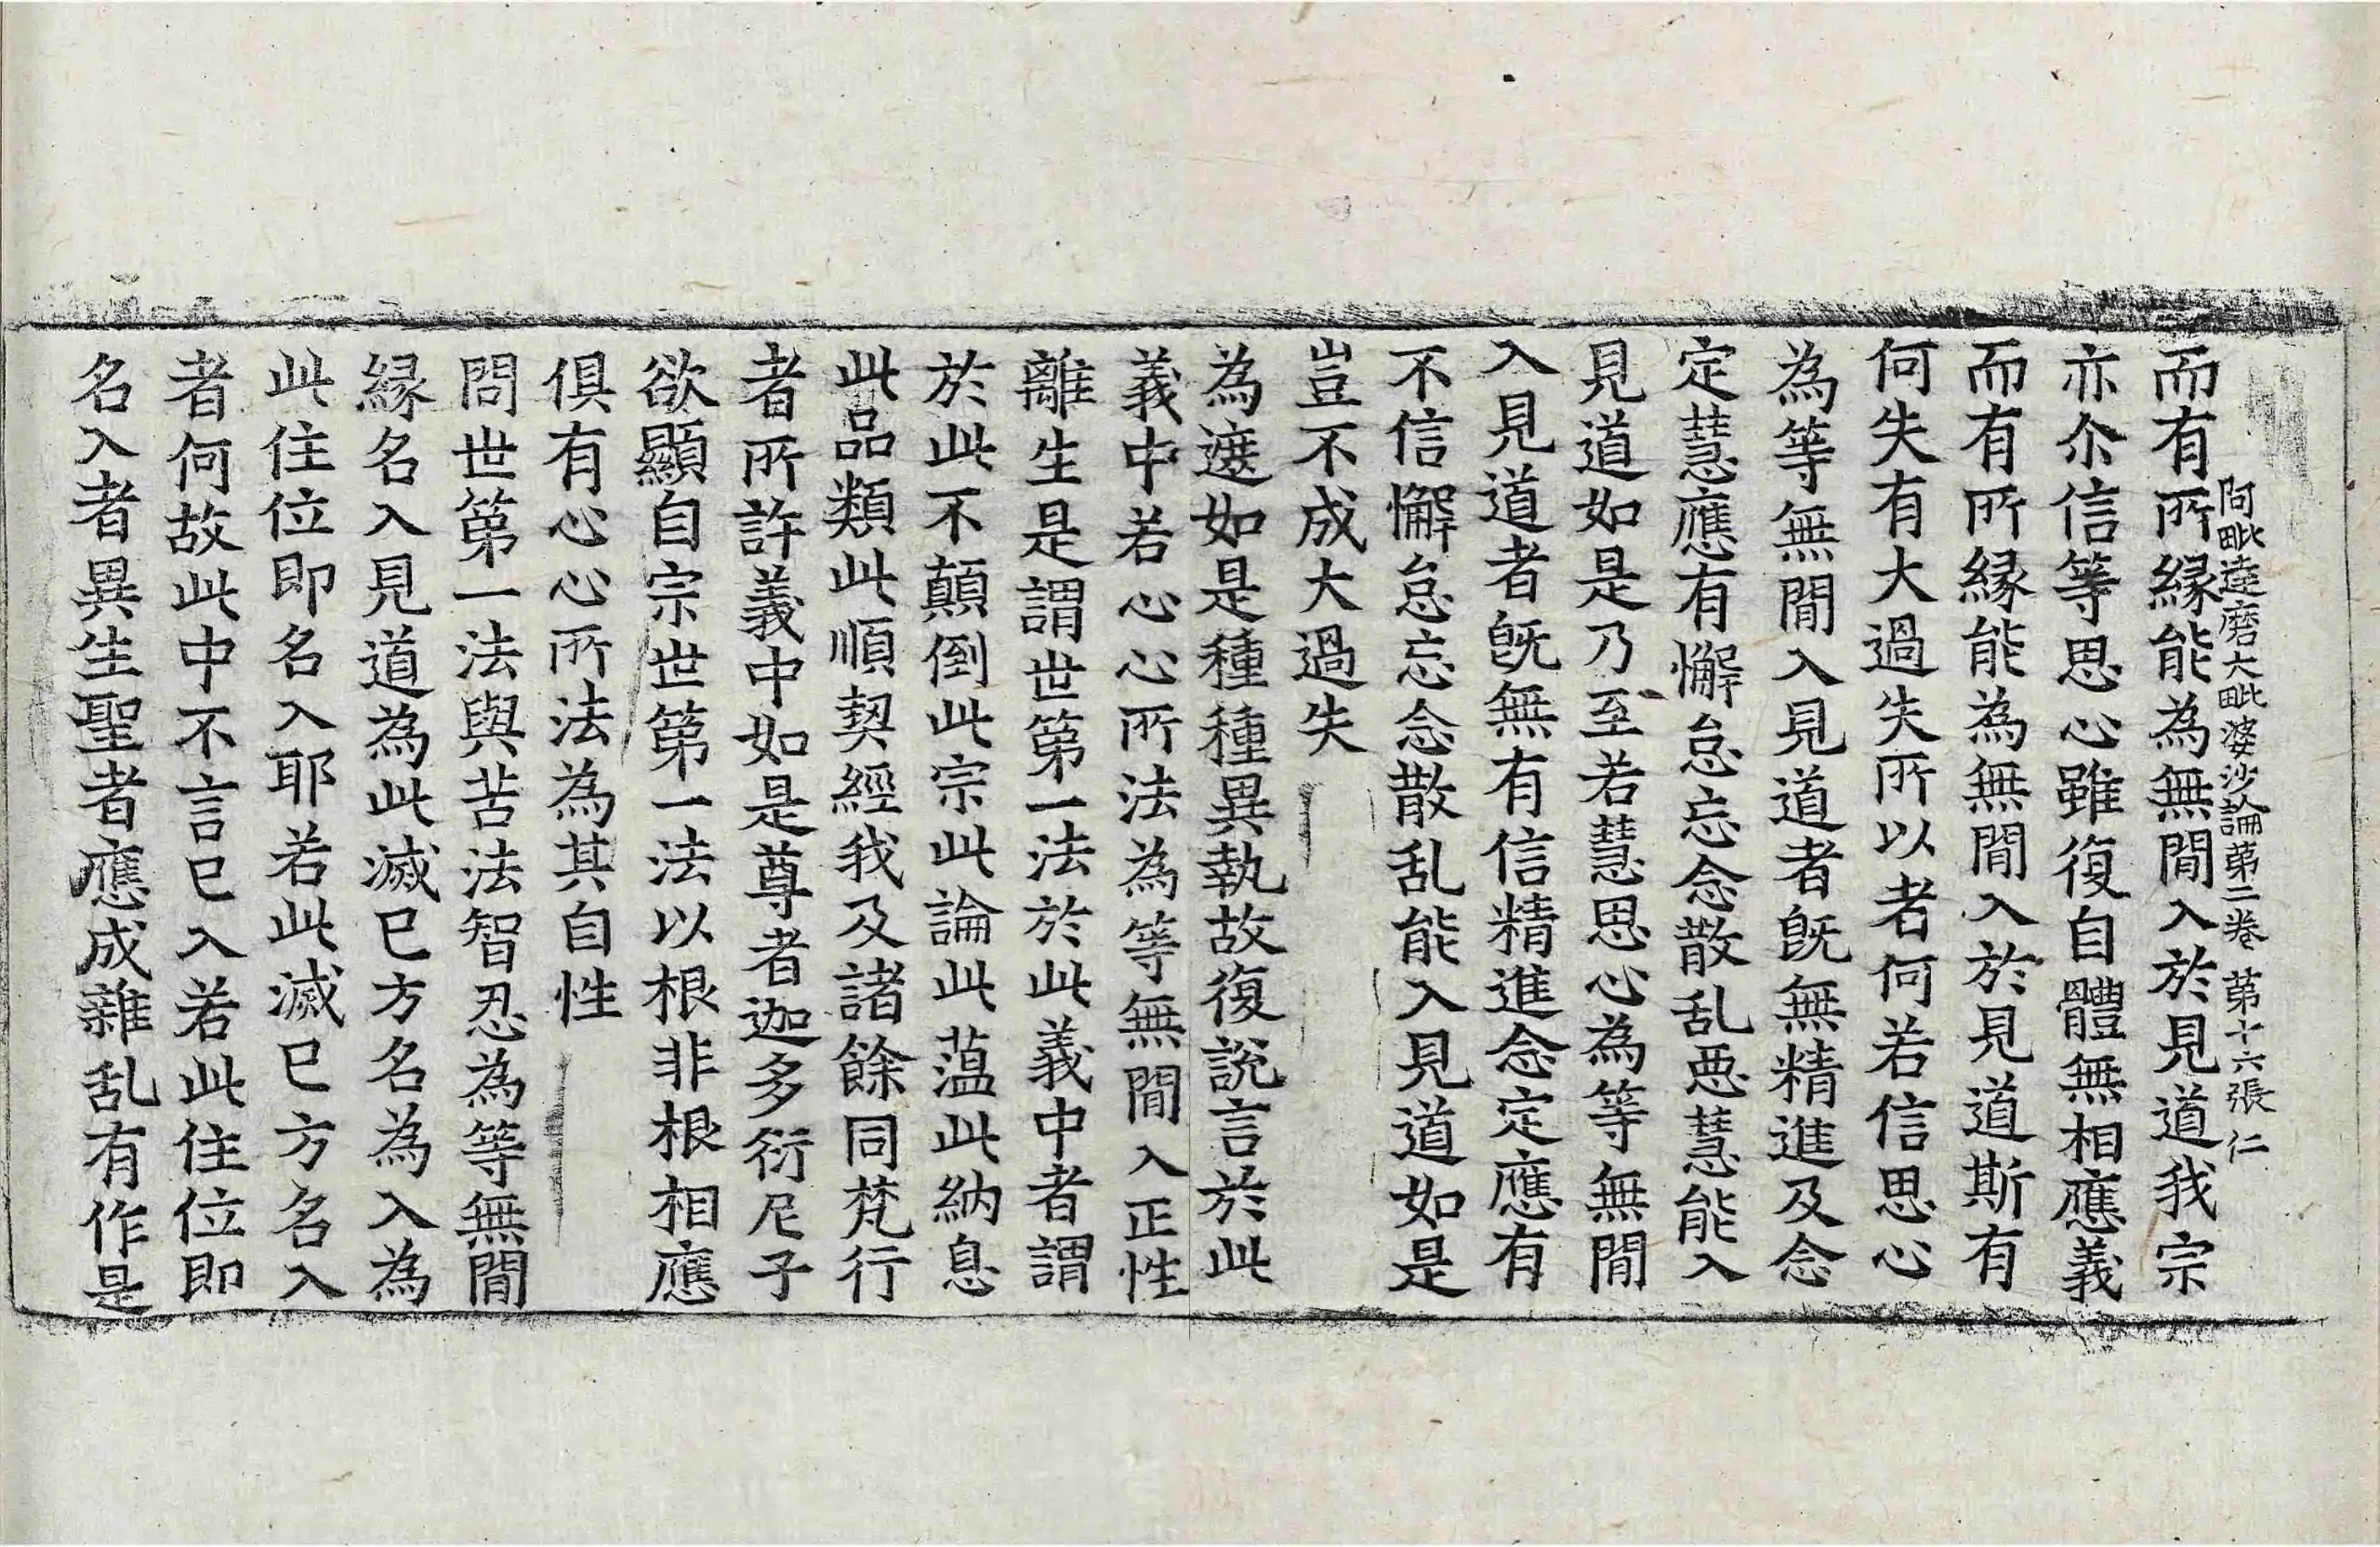 阿毗達磨大毗婆沙論第二卷 第十六張 仁
而有所縁能為無間入於見道我宗
亦尒信等思心雖復自體無相應義
而有所縁能為無間入於見道斯有
何失有大過失所以者何若信思心
為等無間入見道者旣無精進及念
定慧應有懈怠忘念散乱惡慧能入
見道如是乃至若慧思心為等無間
入見道者旣無有信精進念定應有
不信懈怠忘念散乱能入見道如是
豈不成大過失
為遮如是種種異執故復說言於此
義中若心心所法為等無間入正性
離生是謂世第一法於此義中者謂
於此不顛倒此宗此論此薀此納息
此品類此順契經我及諸餘同梵行
者所許義中如是尊者迦多衍尼子
欲顯自宗世第一法以根非根相應
俱有心心所法為其自性
問世第一法與苦法智忍為等無間
縁名入見道為此滅已方名為入為
此住位即名入耶若此滅已方名入
者何故此中不言已入若此住位即
名入者異生聖者應成雜乱有作是